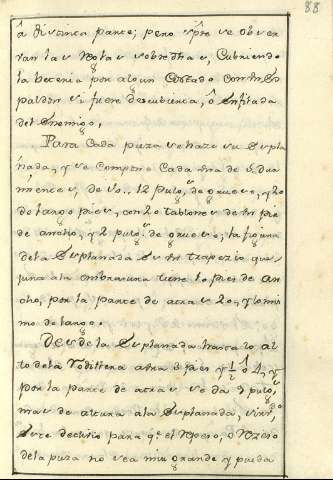 88
â distinta parte; pero siẽpre se observ
van las Notas sobredhas, Cubriendo
la bateria por algun Costado con un Es
paldon si fuere descubierta, ô Enfilada
del Enemigo,
Para Cada pieza se haze su Expla
nada, y se Compone Cada una de 5. dur
mientes, de 10.. 12 pulgs. de grueso, y 20
de largo pies, con 20 tablones de un pie
de ancho, y 2 pulgs. de grueso; la figura
dela Explanada Es Un trapezio que
junto ala embrasura tiene 10 pies de an
cho, por la parte de atras 20, y lo mis
mo de largo:
Desde la Explanada hasta lo al
to dela Rodillera avra 3 pies y ½ ô 4, y
por la parte de atras se da 9 pulgs.
mas de altura ala Explanada,
este declivio para q.e el Peso,
dela pieza no sea mui grande y pueda